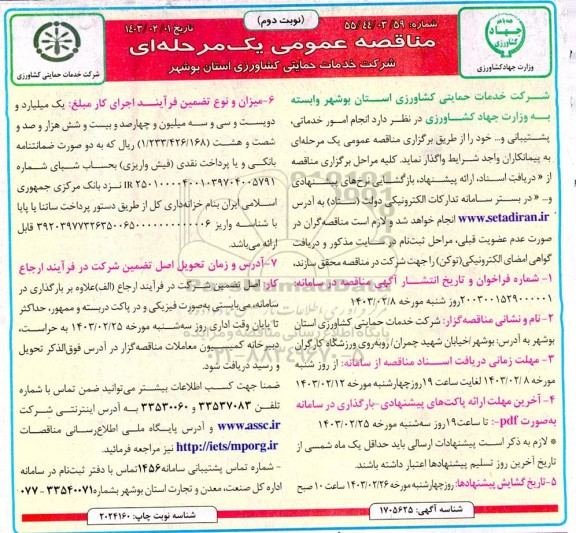 (نوبت دوم)
شماره: ۵۵/۴۴/۰۳/۵۹
تاریخ ۱۴۰۳/۰۲/۰۱
مناقصه عمومی یک‌مرحله‌ای
شرکت خدمات حمایتی کشاورزی استان بوشهر
جهاد کشاورزی
وزارت جهادکشاورزی
شرکت خدمات حمایتی کشاورزی
شرکت خدمات حمایتی کشاورزی استان بوشهر وابسته
به وزارت جهاد کشاورزی در نظر دارد انجام امور خدماتی،
پشتیبانی و... خود را از طریق برگزاری مناقصه عمومی یک مرحله‌ای
به پیمانکاران واجد شرایط واگذار نماید. کلیه مراحل برگزاری مناقصه
از « دریافت اسناد، ارائه پیشنهاد، بازگشایی نرخ‌های پیشنهادی
و... » در بستر سامانه تدارکات الکترونیکی دولت (ستاد) به آدرس
www.setadiran.ir انجام خواهد شد و لازم است مناقصه‌گران در
صورت عدم عضویت قبلی، مراحل ثبت‌نام در سایت مذکور و دریافت
گواهی امضای الکترونیکی(توکن) را جهت شرکت در مناقصه محقق سازند.
۱- شماره فراخوان و تاریخ انتشار آگهی مناقصه در سامانه:
۲۰۰۳۰۰۱۵۲۹۰۰۰۰۰۱ روز شنبه مورخه ۱۴۰۳/۰۲/۸
۲-نام و نشانی مناقصه‌گزار: شرکت خدمات حمایتی کشاورزی استان
بوشهر به آدرس: بوشهر/خیابان شهید چمران/ روبه‌روی ورزشگاه کارگران
۳- مهلت زمانی دریافت اسناد مناقصه از سامانه: از روز شنبه
مورخه ۱۴۰۳/۰۲/۸ لغایت ساعت ۱۹ روز چهارشنبه مورخه ۱۴۰۳/۰۲/۱۲
۴- آخرین مهلت ارائه پاکت‌های پیشنهادی-بارگذاری در سامانه
به‌صورت pdf-: تا ساعت ۱۹ روز سه‌شنبه مورخه ۱۴۰۳/۰۲/۲۵
* لازم به ذکر است پیشنهادات ارسالی باید حداقل یک ماه شمسی از
تاریخ آخرین روز تسلیم پیشنهادها اعتبار داشته باشند.
۵-تاریخ گشایش پیشنهادها: روز چهارشنبه مورخه ۱۴۰۳/۰۲/۲۶ ساعت ۱۰ صبح
۶-میزان و نوع تضمین فرآیند اجرای کار مبلغ: یک میلیارد و
دویست و سی و سه میلیون و چهارصد و بیست و شش هزار و صد و
شصت و هشت (۱/۲۳۳/۴۲۶/۱۶۸) ریال که به دو صورت ضمانتنامه
بانکی و یا پرداخت نقدی (فیش واریزی) بحساب شبای شماره
نزد بانک مرکزی جمهوری
اسلامی ایران بنام خزانه‌داری کل از طریق دستور پرداخت ساتنا یا پایا
با شناسه واریز
قابل
ارائه می‌باشد.
۷-آدرس و زمان تحویل اصل تضمین شرکت در فرآیند ارجاع
کار: اصل تضمین شرکت در فرآیند ارجاع (الف)علاوه بر بارگذاری در
سامانه، می‌بایستی به‌صورت فیزیکی و در پاکت دربسته و ممهور، حداکثر
تا پایان وقت اداری روز سه‌شنبه مورخه ۱۴۰۳/۰۲/۲۵ به حراست،
دبیرخانه کمیسیون معاملات مناقصه‌گزار در آدرس فوق‌الذکر تحویل
و رسید دریافت شود.
ضمنا جهت کسب اطلاعات بیشتر می‌توانید ضمن تماس با شماره
تلفن ۳۳۵۳۷۰۸۳ و ۳۳۵۳۰۰۶۰ به آدرس اینترنتی شرکت
www.assc.ir و آدرس پایگاه ملی اطلاع‌رسانی مناقصات
http://iets/mporg.ir نیز مراجعه فرمائید.
- شماره تماس پشتیبانی سامانه ۱۴۵۶ تماس با دفتر ثبت‌نام در سامانه
اداره کل صنعت، معدن و تجارت استان بوشهر بشماره ۳۳۵۴۰۰۷۱-۰۷۷
شناسه آگهی: ۱۷۰۵۶۲۵
شناسه نوبت چاپ: ۲۰۲۴۱۶۰